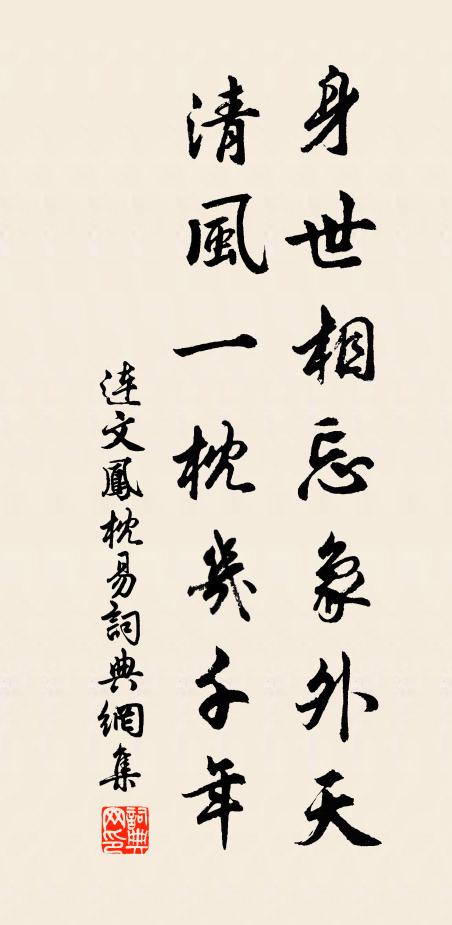 身世相忘象外天
清風一枕幾千年
連文鳳枕易詞典網集
詞典网印